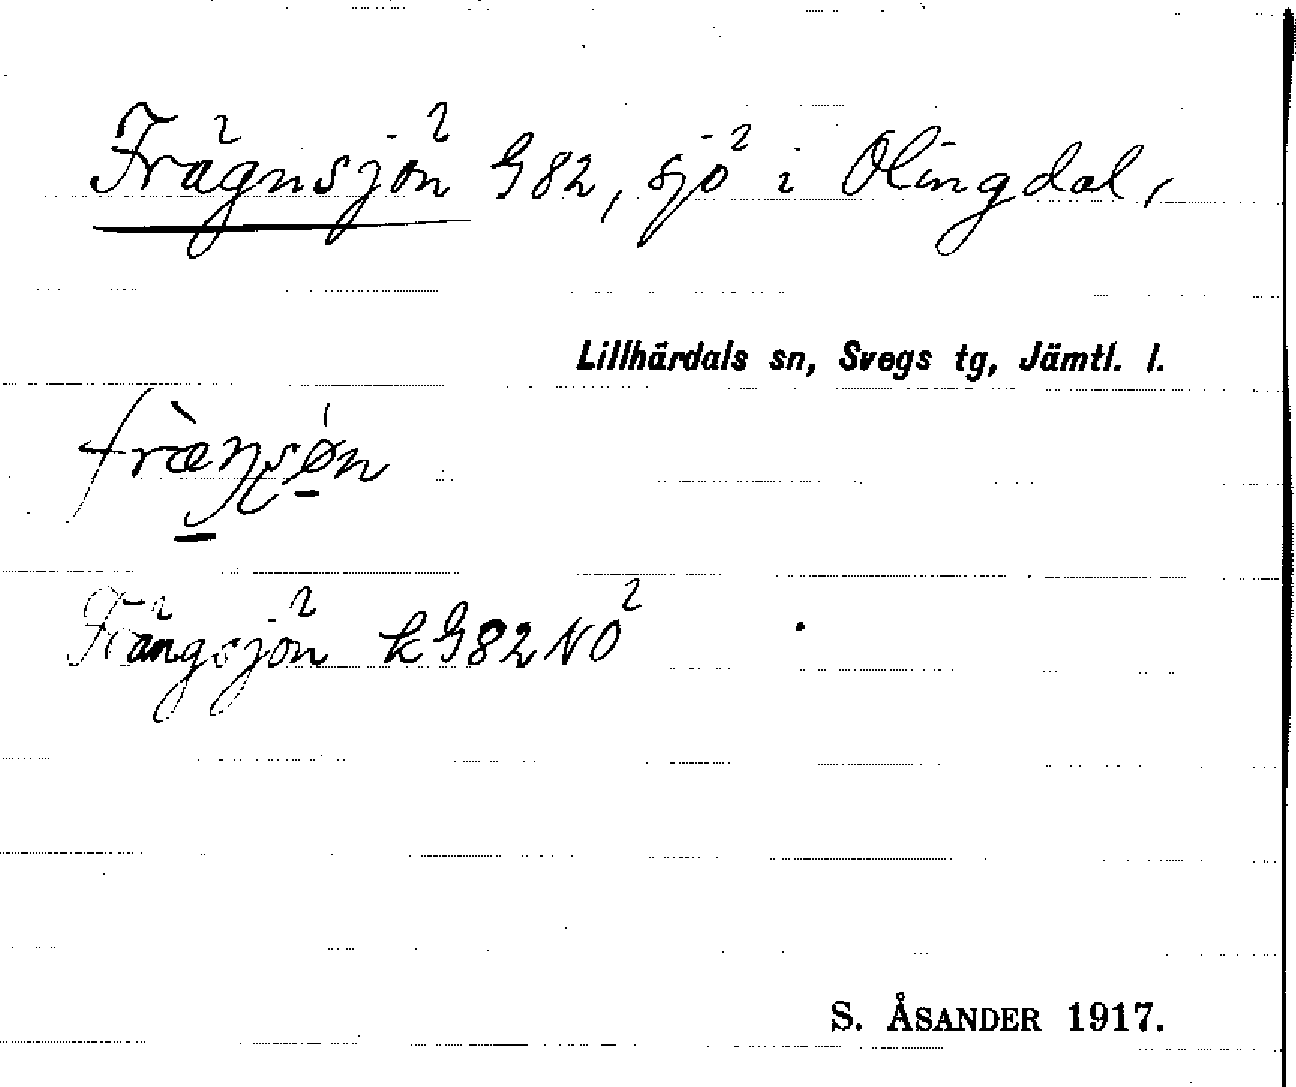 Frägnsjön G82, sjö i Olingdal,
Lillhärdals sn, Svegs tg, Jämtl. l.
fræ̀ŋsǿn
Frängsjön k G82NO
S. ÅSANDER 1917.